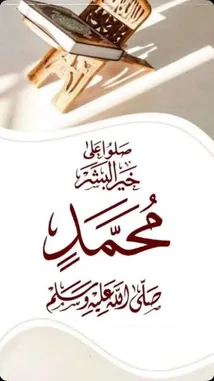 صلوا على
خير البشر
محمد
صلى الله عليه وسلم